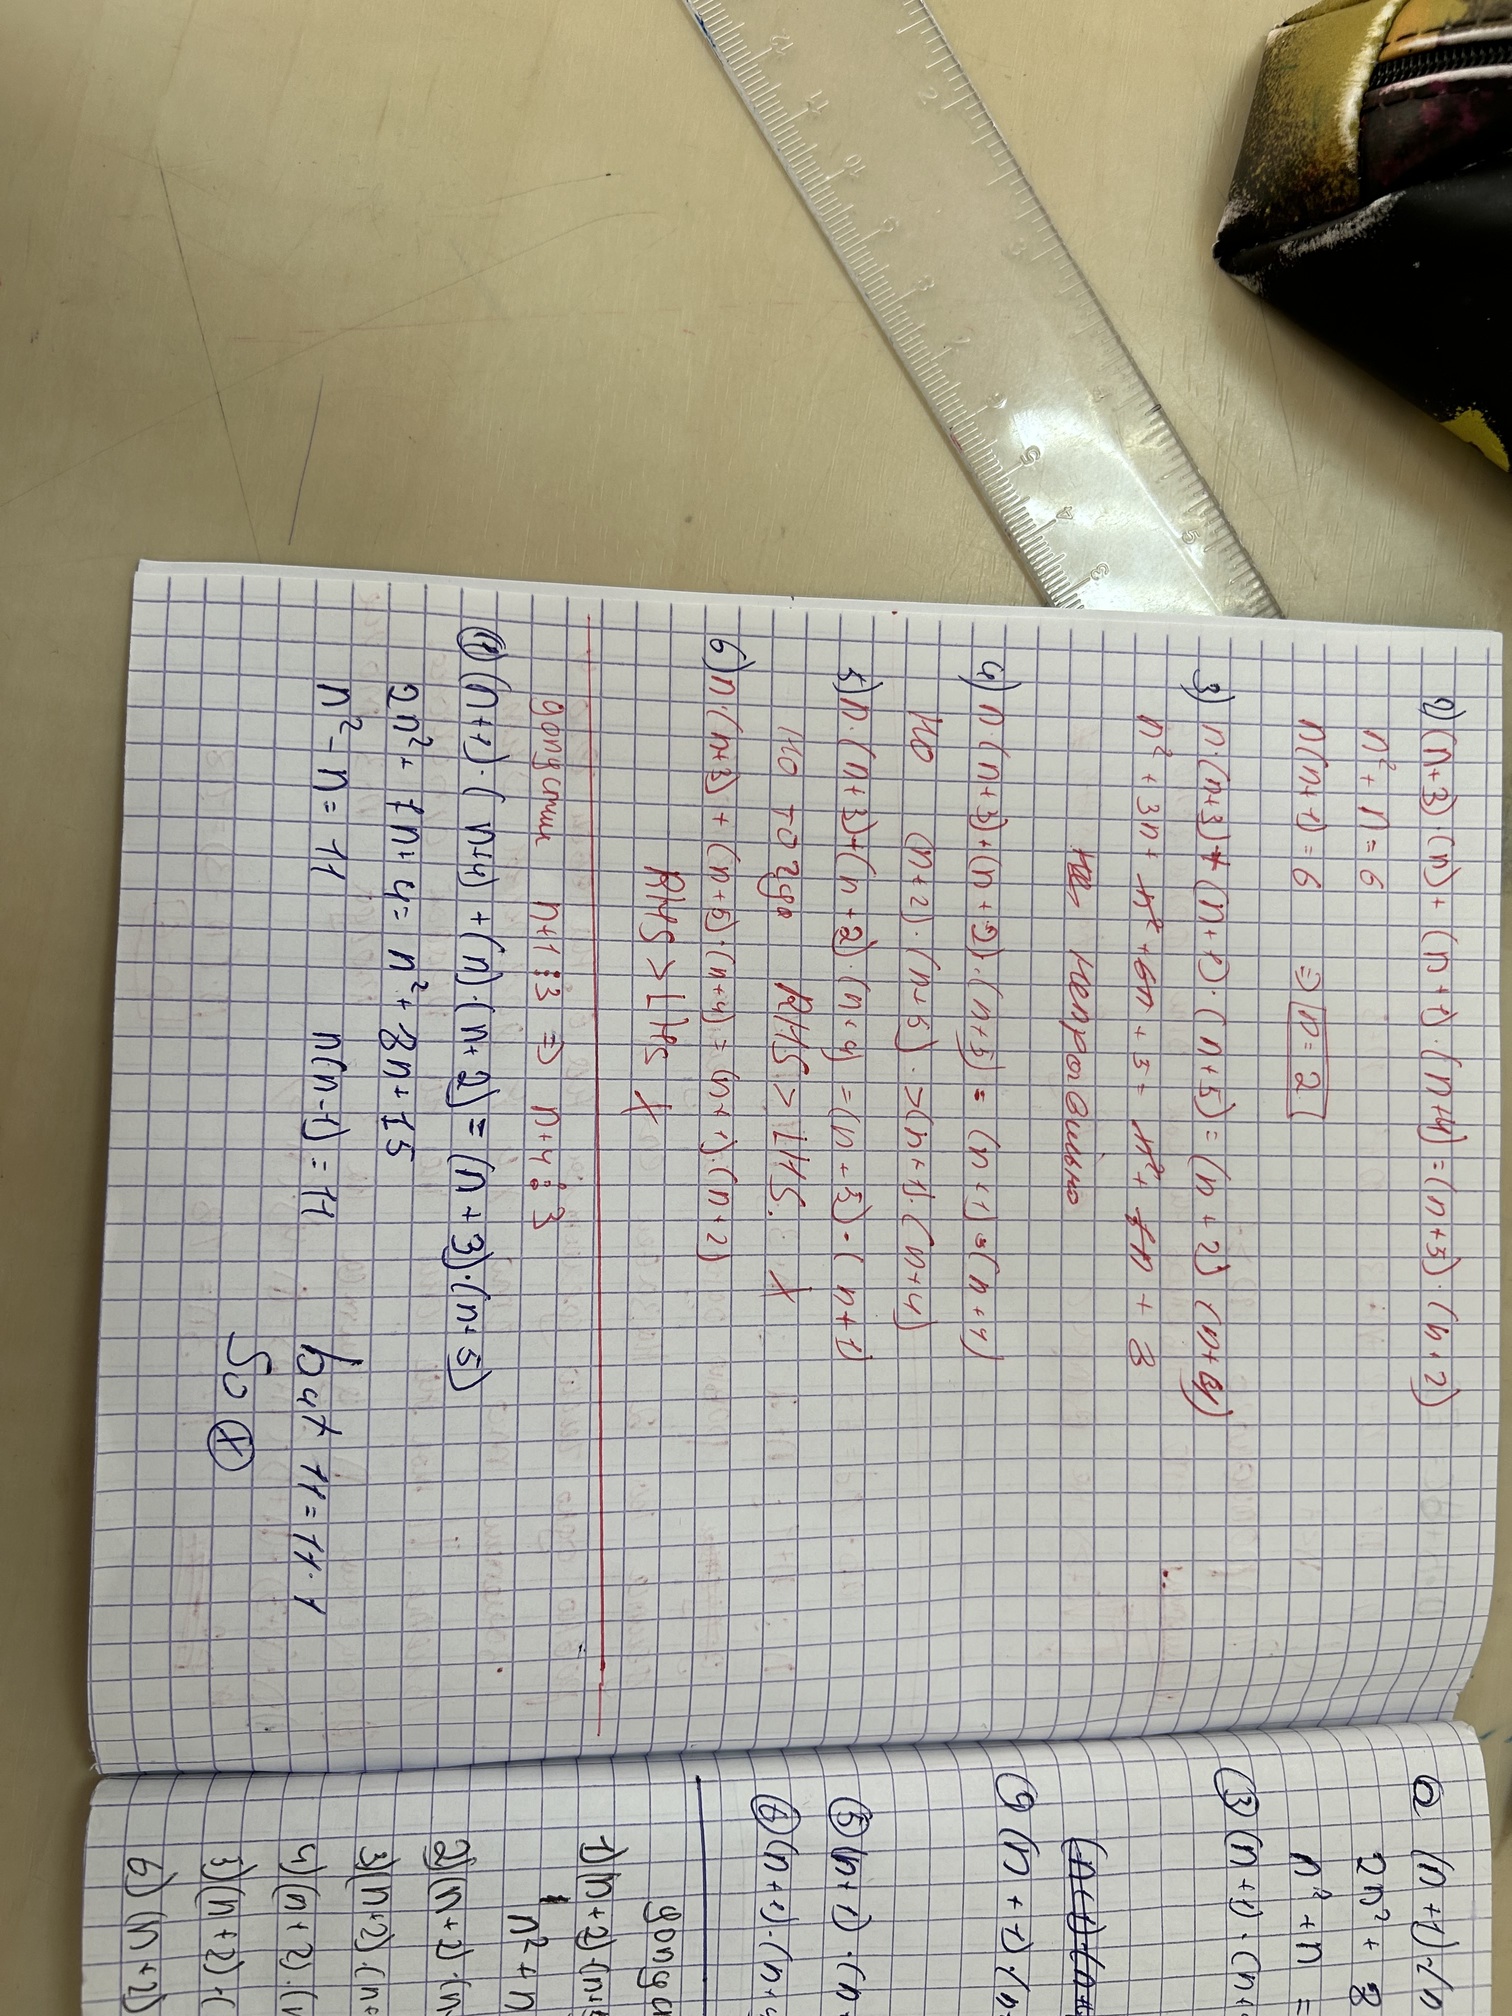 2) (n+3)·(n)+(n+1)·(n+4)=(n+5)·(n+2)
n²+n=6
n(n+1)=6 ⇒ n=2
3) n·(n+3)+(n+1)·(n+5)=(n+2)(n+4)
n²+3n+n²+6n+5=n²+6n+8
неправильно
4) n·(n+3)+(n+2)·(n+5)=(n+1)·(n+4)
Но (n+2)·(n+5)>(n+1)·(n+4)
5) n·(n+3)+(n+2)·(n+4)=(n+5)·(n+1)
Но тогда RHS>LHS. X
6) n·(n+3)+(n+5)·(n+4)=(n+1)·(n+2)
RHS>LHS X
допустим n+1⋮3 ⇒ n+4⋮3
(1) (n+1)·(n+4)+(n)·(n+2)=(n+3)·(n+5)
2n²+7n+4=n²+8n+15
n²-n=11 n(n-1)=11 but 11=11·1
So X
(2) (n+1)·(n
2n²+8
n²+n=
(3) (n+1)·(n+
(4) (n+1)·(n
(5) (n+1)·(n
(6) (n+1)·(n+4
1) (n+2)·(n+
n²+n
2) (n+2)·(n
3) (n+2)·(n+
4) (n+2)·(n
5) (n+2)·(
6) (n+2)